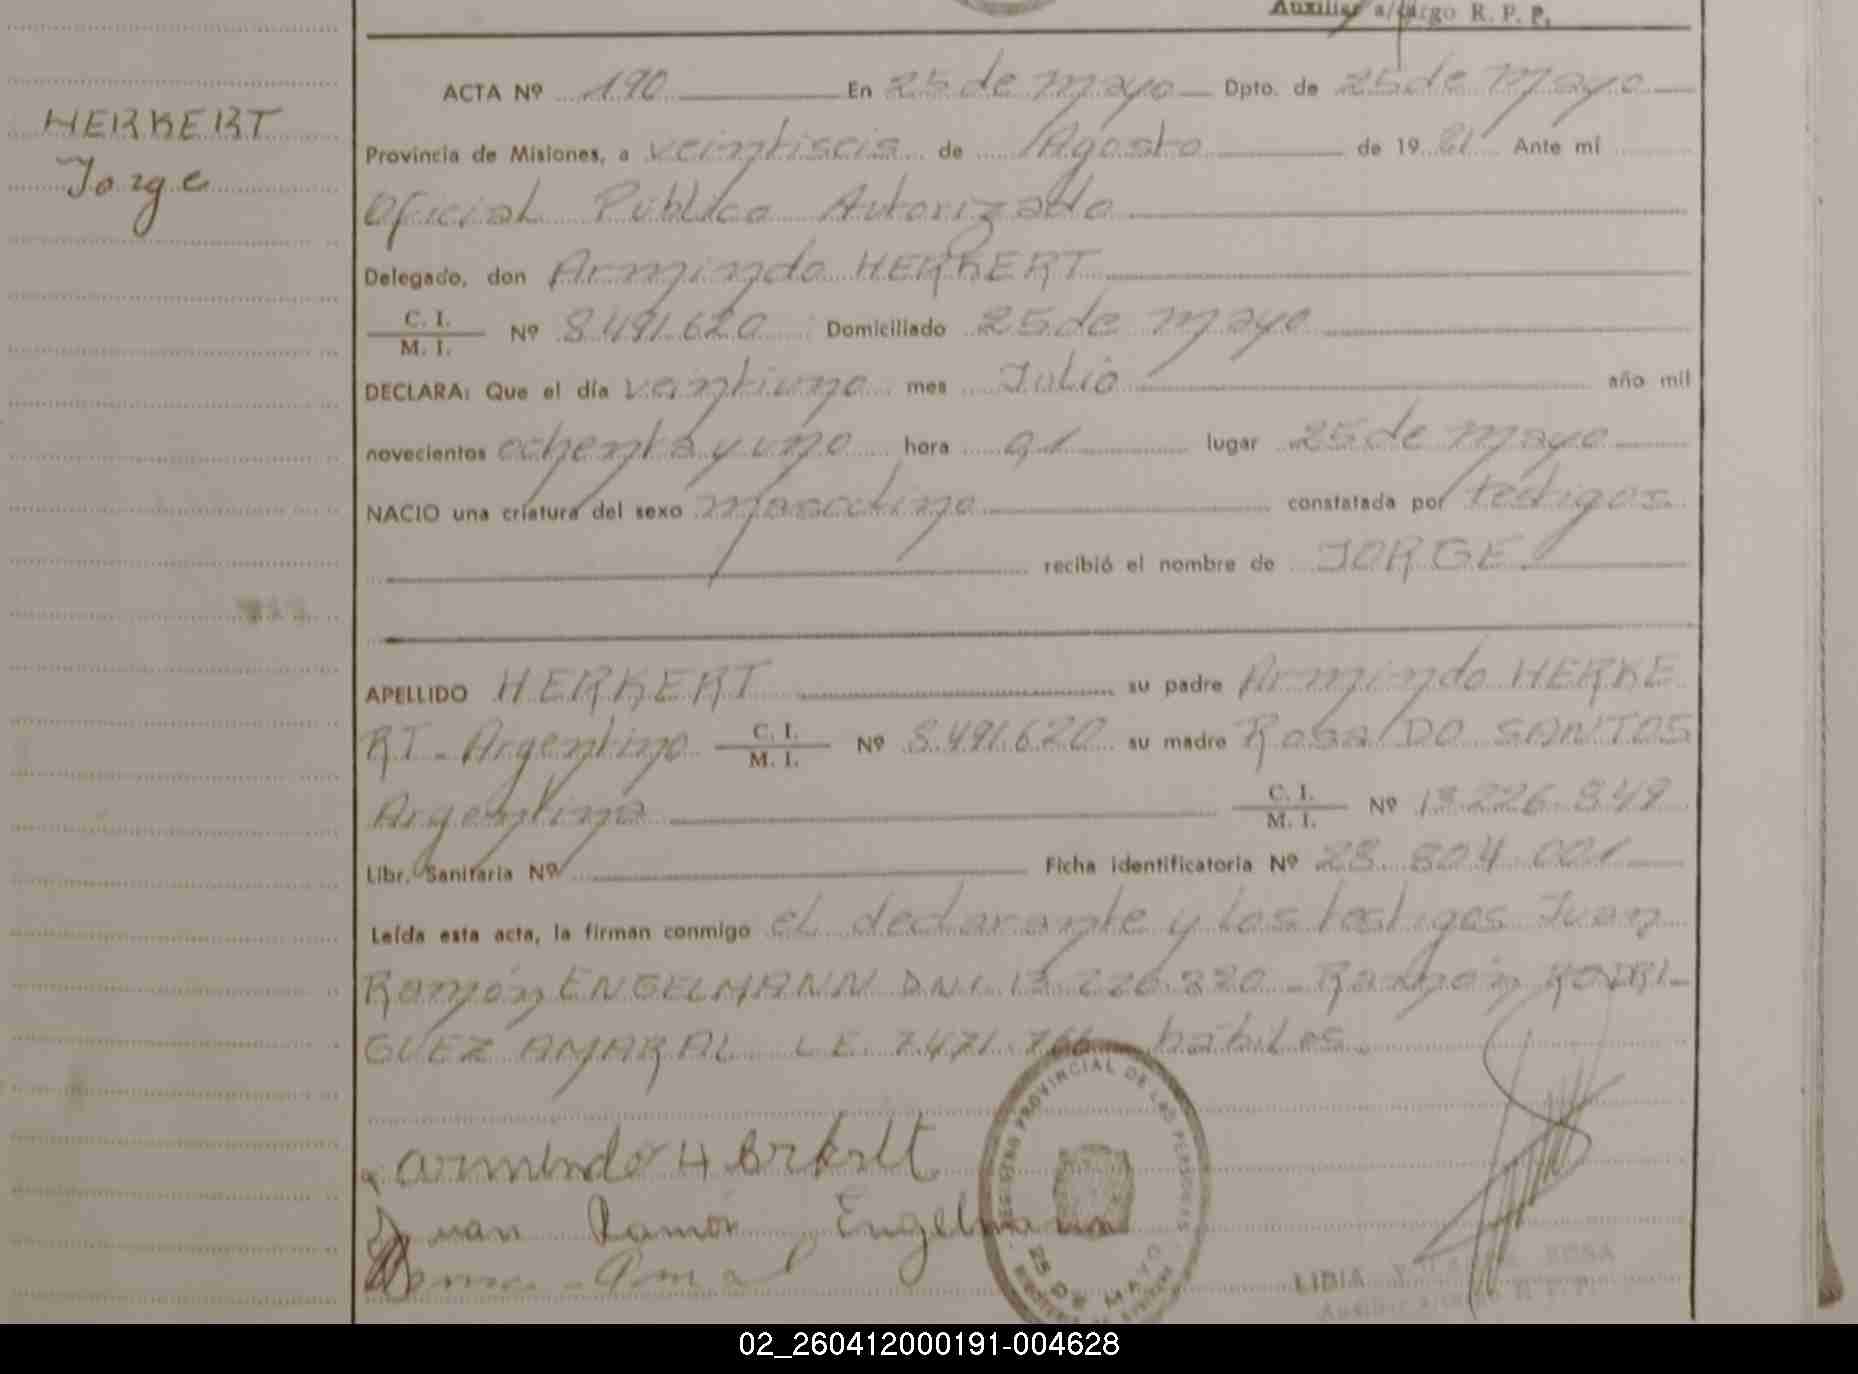 Auxiliar a/cargo R. P. P.
HERKERT
Jorge
ACTA Nº 190 En 25 de mayo Dpto. de 25 de Mayo
Provincia de Misiones, a veintiseis de Agosto de 19 81 Ante mí
Oficial Público Autorizado
Delegado, don Armindo HERKERT
C. I.
M. I. Nº 8.491.620 Domiciliado 25 de mayo
DECLARA: Que el día veintiuno mes Julio año mil
novecientos ochenta y uno hora 01 lugar 25 de mayo
NACIO una criatura del sexo masculino constatada por testigos
recibió el nombre de JORGE
APELLIDO HERKERT su padre Armindo HERKE
RT - Argentino C. I. M. I. Nº 8.491.620 su madre Rosa DO SANTOS
Argentina C. I. M. I. Nº 13.226.849
Libr. Sanitaria Nº Ficha identificatoria Nº 28.804.001
Leída esta acta, la firman conmigo el declarante y los testigos Juan
Ramón ENGELMANN DNI. 13.226.220 - Ramón RODRI-
GUEZ AMARAL LE 7.471.766 habiles.
armindo Herkert
Juan Ramón Engelmann
REGISTRO PROVINCIAL DE LAS PERSONAS
25 DE MAYO
LIDIA ROSA
Auxiliar a/cargo R. P. P.
02_260412000191-004628